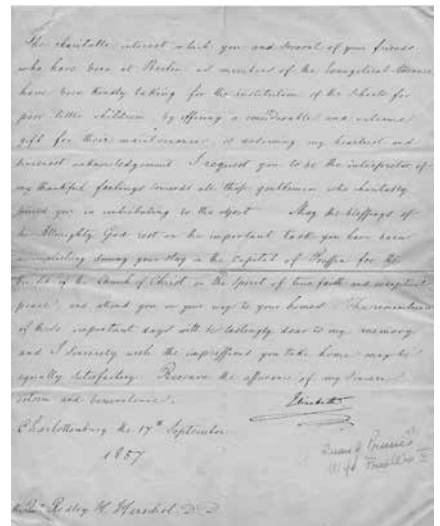 The charitable interest which you and several of your friends
who have been at Berlin as members of the Evangelical Alliance
have been kindly taking for the institution of the Schools for
poor little children by offering a considerable and welcome
gift for their maintenance, is deserving my heartiest and
sincerest acknowledgement. I request you to be the interpreter of
my thankful feelings towards all these gentlemen who charitably
joined you in contributing to this object. May the blessings of
the Allmighty God rest on the important task you have been
accomplishing during your stay in the Capital of Prussia for the
benefit of the Church of Christ in the Spirit of true faith and
peace, and attend you on your way to your homes! The remembrance
of these important days will be lastingly dear to my memory
and I sincerely wish the impressions you take home may be
equally satisfactory. Receive the assurance of my sincere
esteem and benevolence.
Elisabeth
Charlottenburg the 17th September
1857
Queen of Prussia
Wife
Ridley H. Herschel D. D.